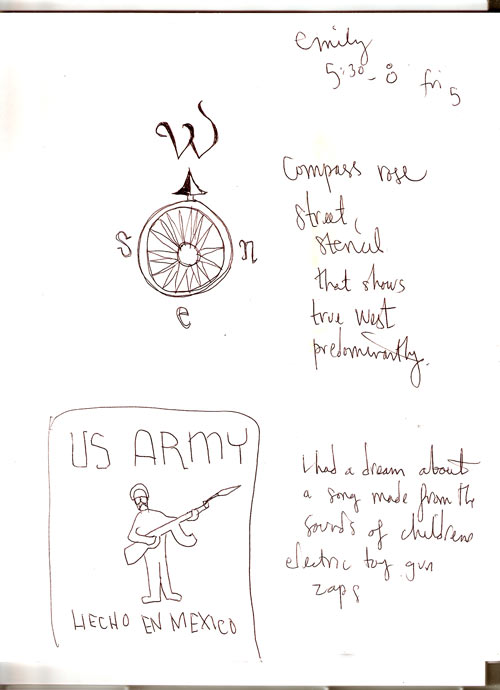 emily
5:30-8 fri 5
W
S
n
e
Compass rose
street,
stencil
that shows
true west
predominantly.
US ARMY
HECHO EN MEXICO
I had a dream about
a song made from the
sounds of childrens
electric toy gun
zaps